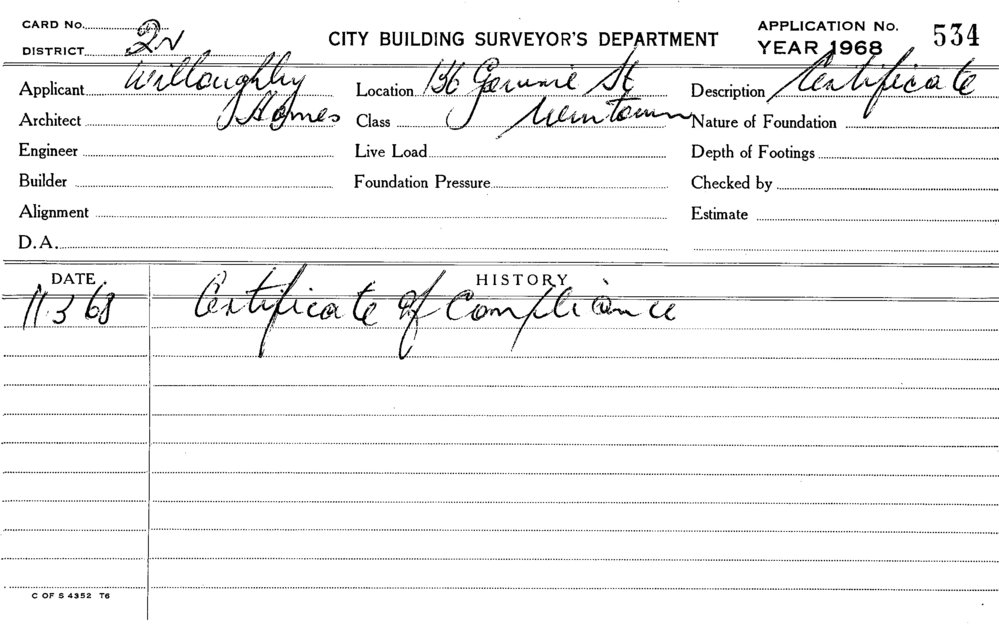 CARD No.
DISTRICT 2N
CITY BUILDING SURVEYOR'S DEPARTMENT
APPLICATION No. 534
YEAR 1968
Applicant Willoughby Homes
Location 136 St Newtown
Description Certificate
Architect
Class
Nature of Foundation
Engineer
Live Load
Depth of Footings
Builder
Foundation Pressure
Checked by
Alignment
Estimate
D.A.
DATE
HISTORY
11.3.68 Certificate of Compliance
C OF S 4352 T6